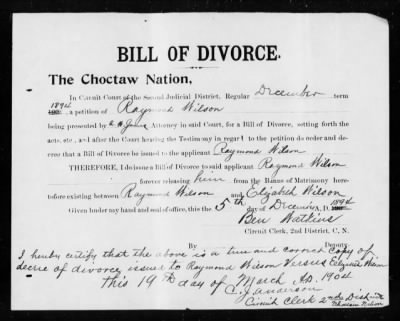 BILL OF DIVORCE.
The Choctaw Nation,
In Circuit Court of the Second Judicial District. Regular December term
1894 a petition of Raymond Wilson
being presented by Attorney in said Court, for a Bill of Divorce, setting forth the
acts, etc., and after the Court hearing the Testimony in regard to the petition do order and de-
cree that a Bill of Divorce be issued to the applicant Raymond Wilson
THEREFORE, I do issue a Bill of Divorce to said applicant Raymond Wilson
forever releasing him from the Banns of Matrimony here-
tofore existing between Raymond Wilson and Elizabeth Wilson
Given under my hand and seal of office, this the 5th day of December A.D. 1894
Ben Watkins
Circuit Clerk, 2nd District, C. N.
By Deputy.
I hereby certify that the above is a true and correct copy of
decree of divorce issued to Raymond Wilson Versus Elizabeth Wilson
this 19th day of March A.D. 1904
C. J. Anderson
Circuit Clerk 2nd District
Choctaw Nation